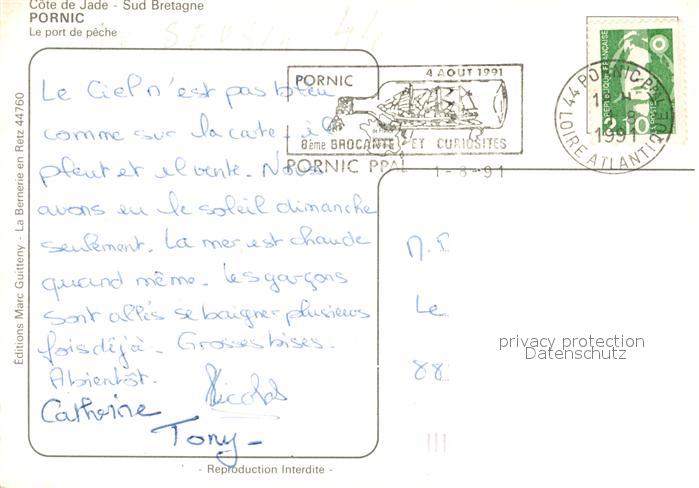 Côte de Jade - Sud Bretagne
PORNIC
Le port de pêche
PORNIC 4 AOUT 1991
8ème BROCANTE ET CURIOSITES
PORNIC PPAL 1-8-91
44 PORNIC PPAL
1-8
1991
LOIRE ATLANTIQUE
REPUBLIQUE FRANÇAISE
2,10
LA POSTE
Le Ciel n'est pas bleu
comme sur la carte, il
pleut et il vente. Nous
avons eu le soleil dimanche
seulement. La mer est chaude
quand même. Les garçons
sont allés se baigner plusieurs
fois déjà. Grosses bises.
Abientôt. Nicolas
Catherine
Tony
Editions Marc Guitteny - La Bernerie en Retz 44760
Le
88
privacy protection
Datenschutz
- Reproduction Interdite -